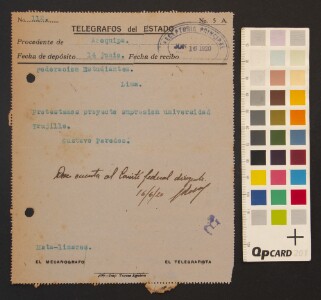 No. 
Nº. 5 A.
TELEGRAFOS del ESTADO
Procedente de Arequipa.
Fecha de depósito. 14 Junio. Fecha de recibo
JUN
Federacion Estudiantes.
Lima.
Protestamos proyecto supresion universidad
Trujillo.
Gustavo Paredes.
Dar cuenta al Comité federal
Mata-linares.
EL MECANOGRAFO
EL TELEGRAFISTA
QPCARD